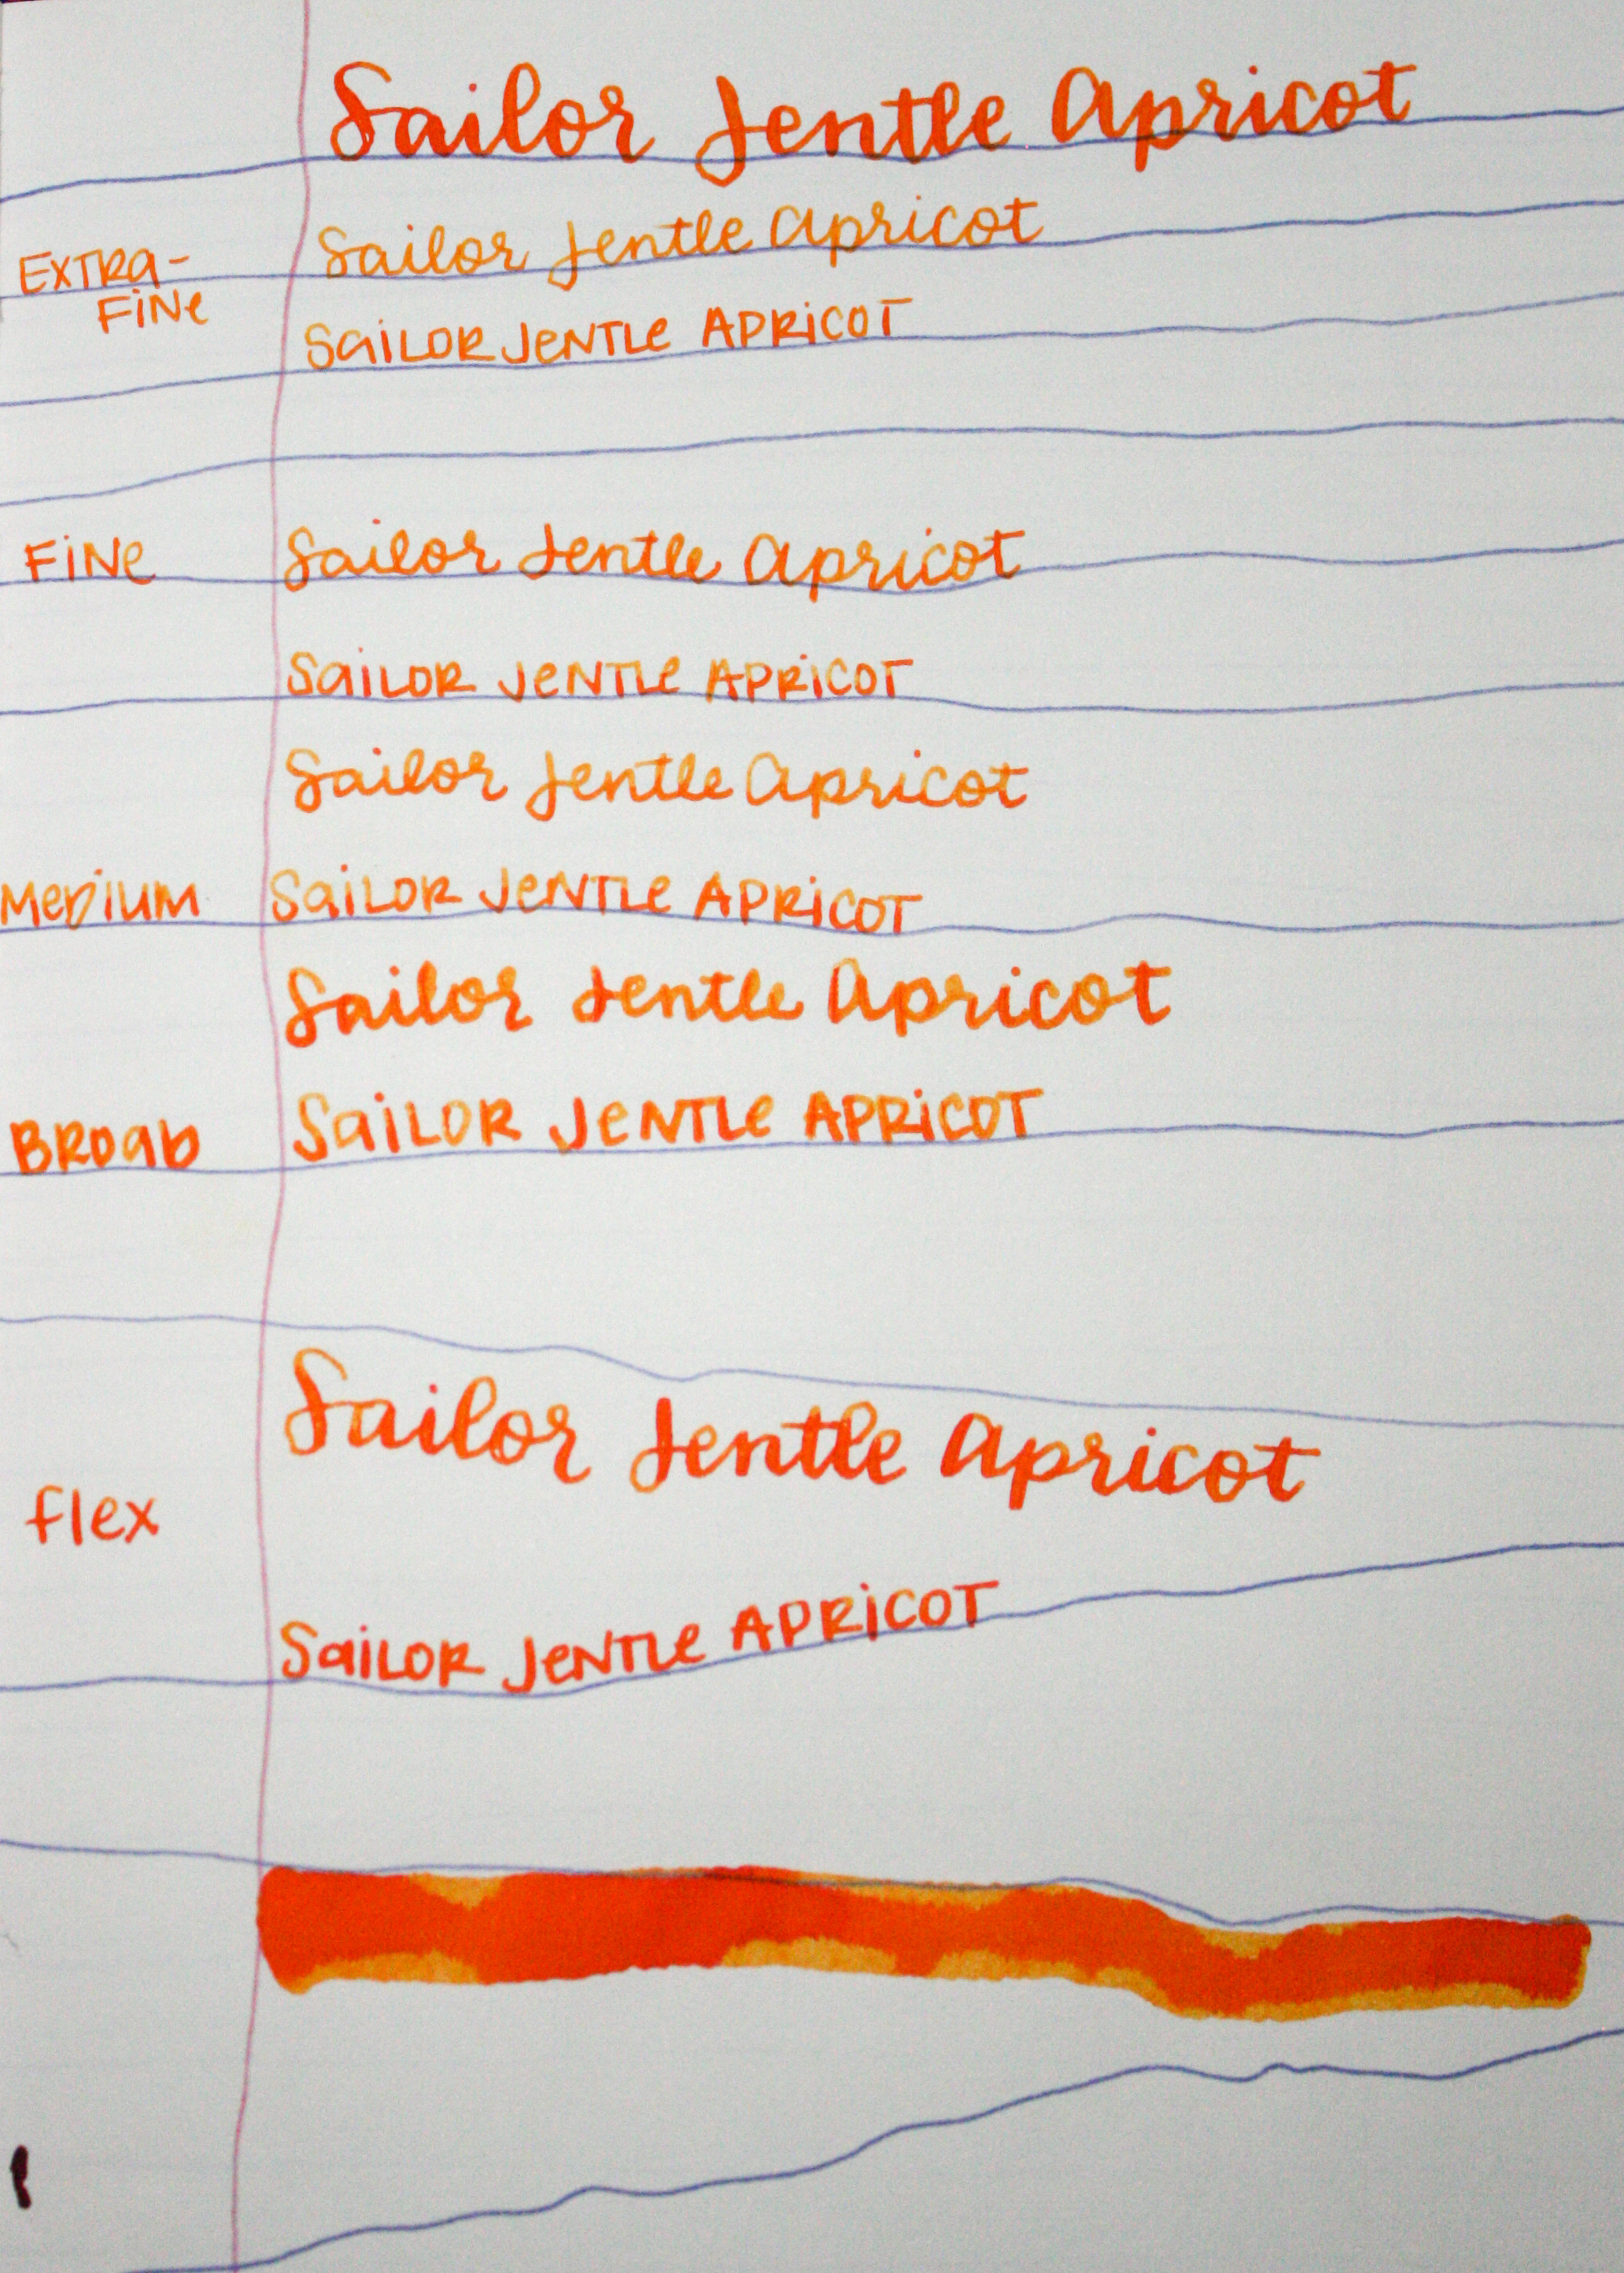 Sailor Jentle Apricot
Sailor Jentle Apricot
EXTRA-
FINe
SaiLOR JeNTLe APRiCOT
FiNe Sailor Jentle Apricot
SaiLOR JeNTLe APRiCOT
Sailor Jentle Apricot
MeDiUM SaiLOR JeNTLe APRiCOT
Sailor Jentle Apricot
BROaD SaiLOR JeNTLe APRiCOT
Sailor Jentle Apricot
flex
SaiLOR JeNTLe APRiCOT